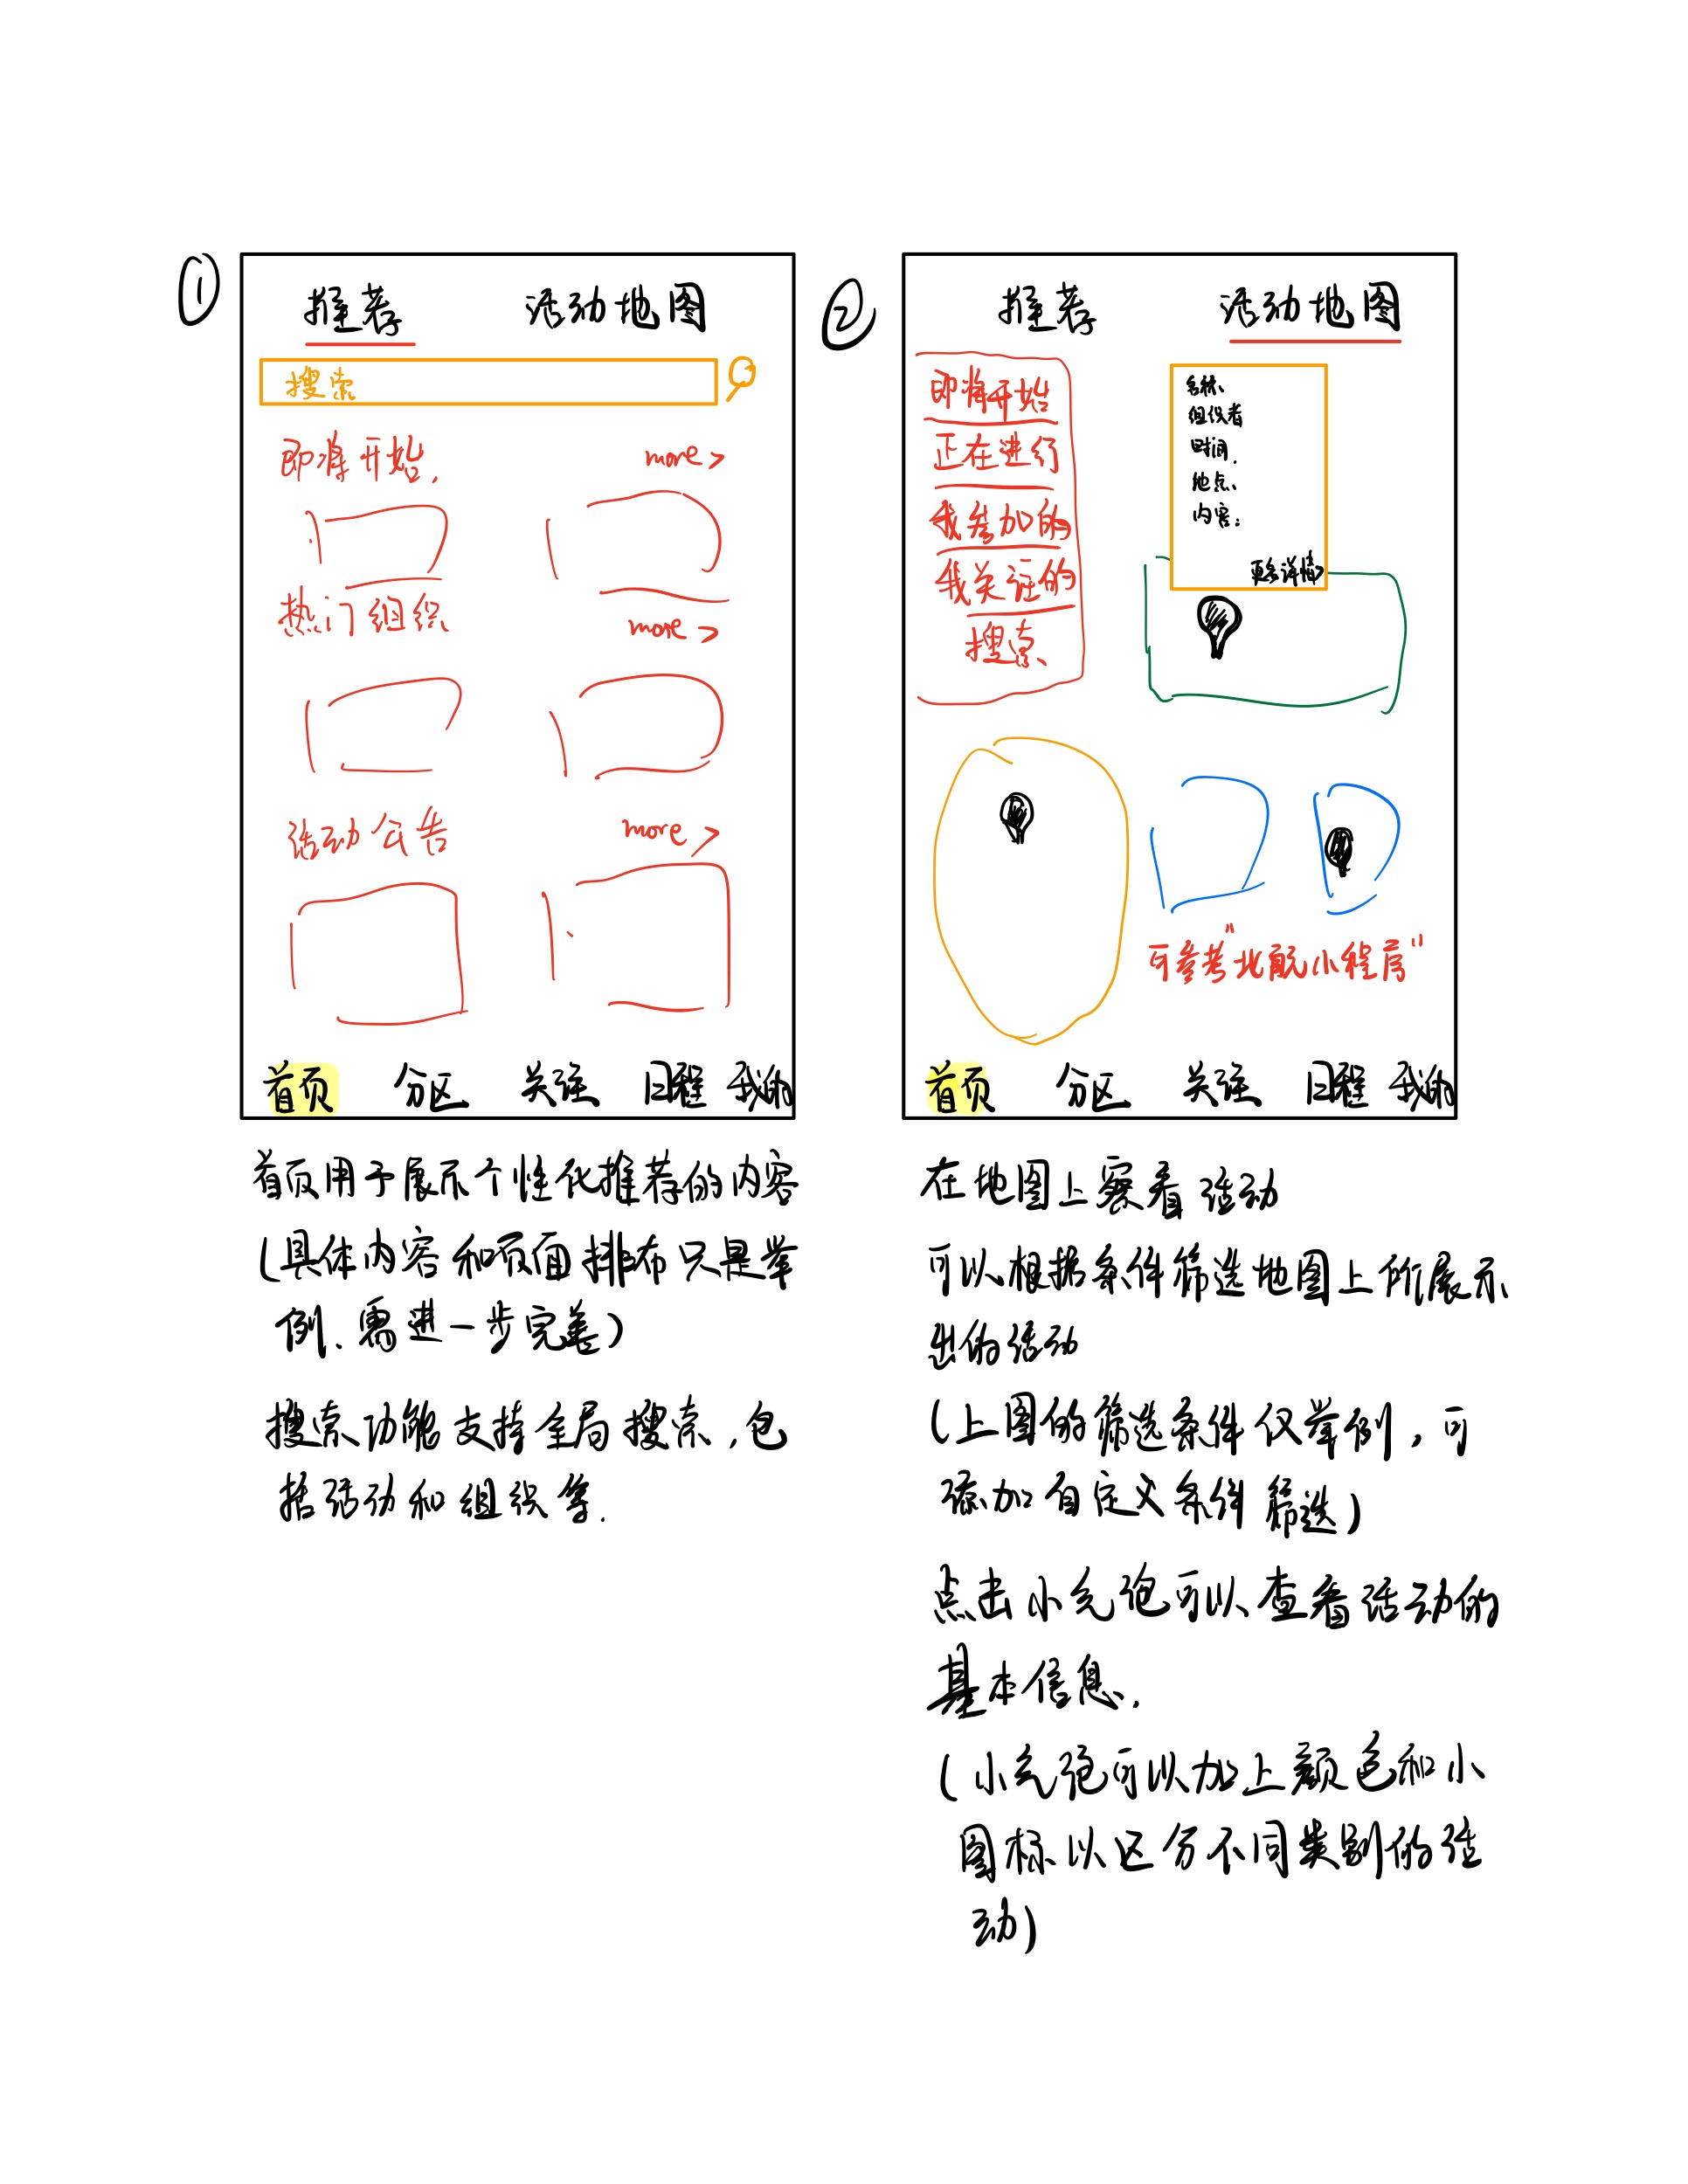 ①
推荐 活动地图
搜索
即将开始. more >
热门组织 more >
活动公告 more >
首页 分区 关注 日程 我的
首页用于展示个性化推荐的内容
(具体内容和页面排布只是举
例、需进一步完善)
搜索功能支持全局搜索,包
括活动和组织等.
②
推荐 活动地图
即将开始
正在进行
我参加的
我关注的
搜索
名称、
组织者
时间.
地点、
内容:
更多详情>
可参考"北航小程序"
首页 分区 关注 日程 我的
在地图上察看活动
可以根据条件筛选地图上所展示
出的活动
(上图的筛选条件仅举例,可
添加自定义条件筛选)
点击小气泡可以查看活动的
基本信息.
(小气泡可以加上颜色和小
图标以区分不同类别的活
动)